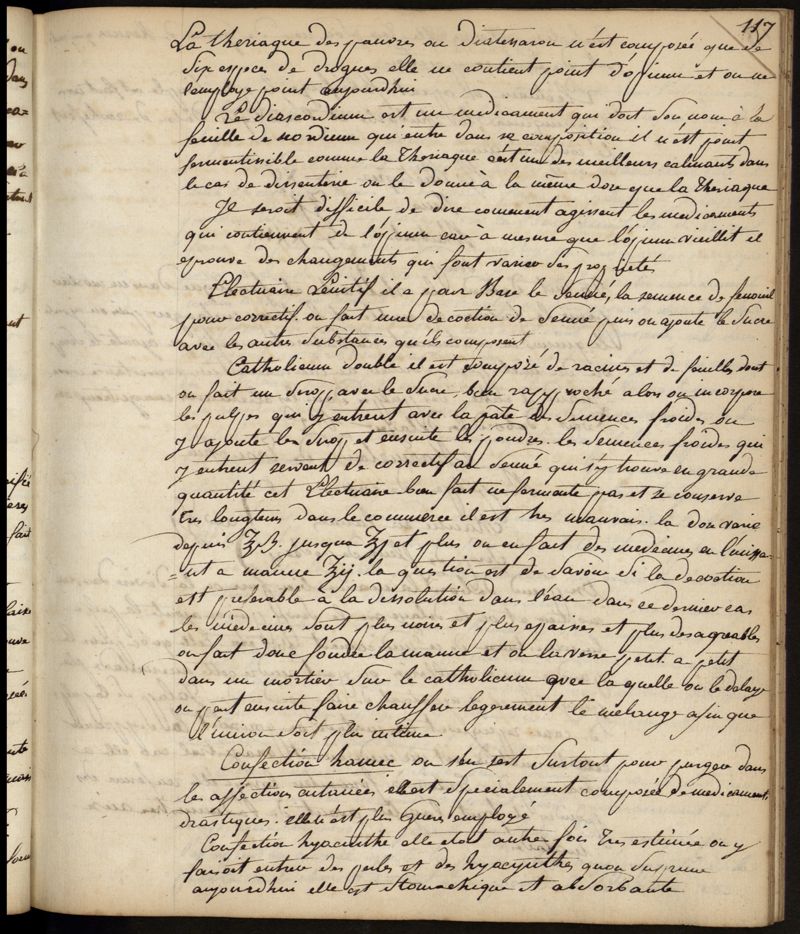 117
La theriaque des pauvres ou diatessaron n'est composée que de
six espces de drogues elle ne contient point d'opium et on ne
l'employe point aujourdhui
Le diascordium est un medicament qui doit son nom à la
feuille de scordium qui entre dans sa composition il n'est point
fermentissible comme la Theriaque c'est un des meilleurs calmants dans
le cas de dissenterie on le donne à la même dose que la theriaque
Il seroit difficile de dire comment agissent les medicaments
qui contiennent de l'opium car à mesure que l'opium vieillit il
eprouve des changements qui font varier ses proprietés
Electuaire Lenitif il a pour Base le Senné, la semence de fenouil
pour correctif. on fait une decoction de Senné puis on ajoute le Sucre
avec les autres substances qu'ils composent
Catholicum double il est composé de racines et de feuilles dont
on fait un Sirop avec le Sucre, bien rapproché alors on incorpore
les pulpes qui y entrent avec la pate des Semences froides on
y ajoute le Sirop et ensuite les poudres. les Semences froides qui
y entrent servent de correctif au Senné qui s'y trouve en grande
quantité cet Electuaire bien fait ne fermente pas et se conserve
tres longtems dans le commerce il est tres mauvais. la dose varie
depuis ʒß. jusqua ʒj et plus on en fait des medecines en l'uniss-
=ant a manne ʒij. la question est de savoir si la decoction
est preferable à la dissolution dans l'eau dans ce dernier cas
les medecines sont plus noires et plus epaisses et plus desagreables
on fait donc fondre la manne et on la verse petit a petit
dans un mortier sur le catholicum avec laquelle on le delaye
on peut ensuite faire chauffer legerement le melange afin que
l'union soit plus intime
Confection hamec on s'en sert surtout pour purger dans
les affections cutanées elle est specialement composée de medicament.
drastiques. elle n'est plus guere employé
Confection hyacinthe elle etoit autre fois tres estimée on y
faisoit entrer des perles et des hyacynthes qu'on suprime
aujourdhui elle est stomachique et absorbante